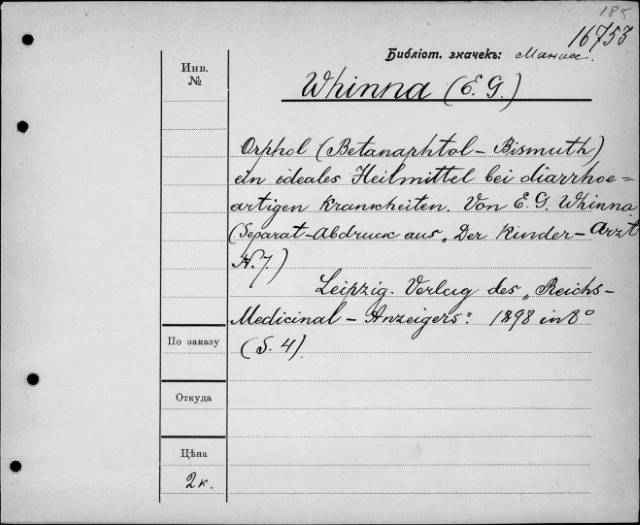 185
16753
Библіот. значекъ: Манасс.
Инв. №
Whinna (E. G.)
Orphol (Betanaphtol - Bismuth)
ein ideales Heilmittel bei diarrhoe=
artigen Krankheiten. Von E. G. Whinna.
(Separat-Abdruck aus „Der Kinder-Arzt
N. 7.)
Leipzig. Verlag des „Reichs-
Medicinal - Anzeigers". 1898 in 8°
(S. 4).
По заказу
Откуда
Цѣна
2 к.